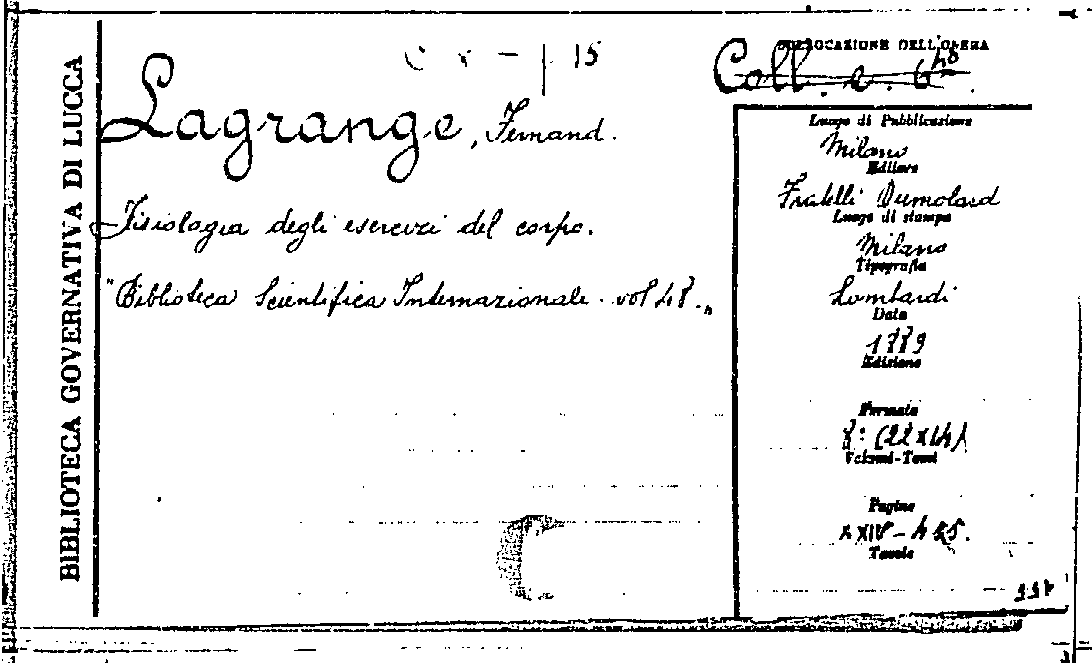 BIBLIOTECA GOVERNATIVA DI LUCCA
15
COLLOCAZIONE DELL'OPERA
Coll. e. 6
Lagrange, Fernand.
Fisiologia degli esercizi del corpo.
"Biblioteca Scientifica Internazionale. vol 48."
Luogo di Pubblicazione
Milano
Editore
Fratelli Dumolard
Luogo di stampa
Milano
Tipografia
Lombardi
Data
1889
Edizione
Formato
8: (22x14)
Volumi-Tomi
Pagine
XXIV-
Tavole